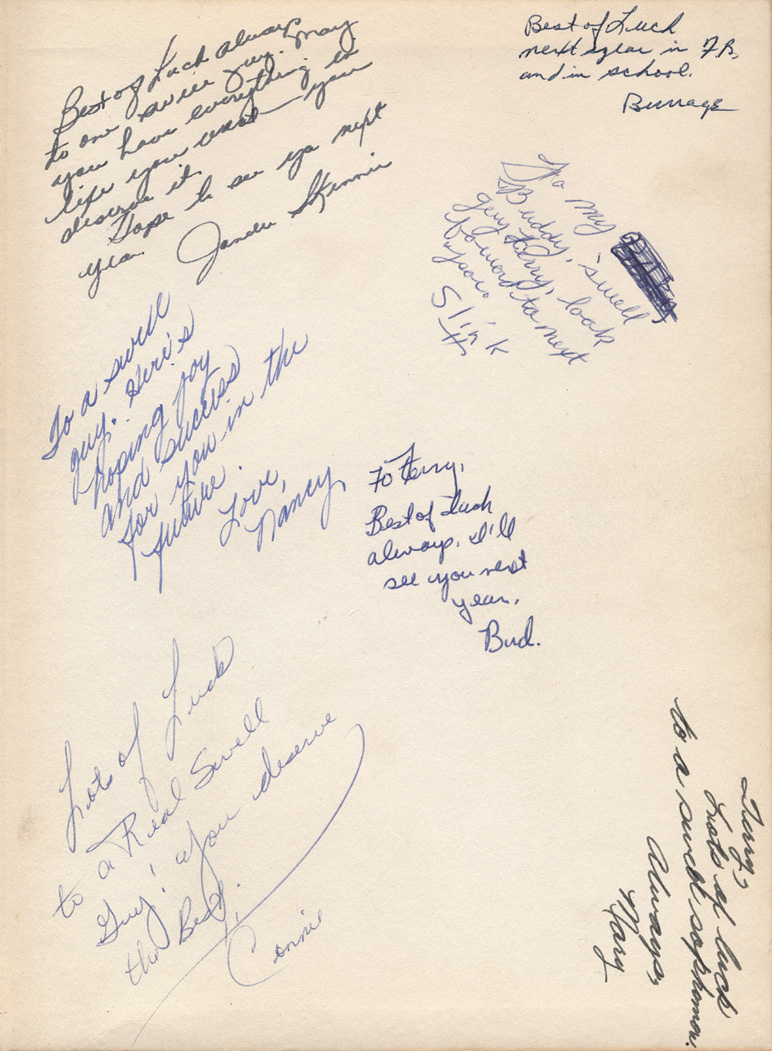 Best of Luck always
to one swell guy. May
you have everything in
life you want you
deserve it.
Hope to see ya next
year.
Best of Luck
next year in F.B.
and in school.
Burrage
To my
Buddy, swell
guy Terry, look
forward to next
year.
Slink
To a swell
guy. Here's
hoping joy
and success
for you in the
future.
Love,
Nancy
To Terry,
Best of Luck
always. I'll
see you next
year.
Bud.
Lots of Luck
to a Real Swell
Guy! You deserve
the Best.
Connie
Terry,
Lots of luck
to a swell sophomore.
Always,
Mary